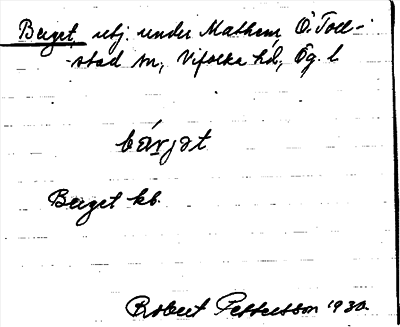 Berget, utj. under Mathem, Ö. Toll-
-stad sn, Vifolka hd, Ög. l.
bärjət
Berget kb.
Robert Pettersson 1930.